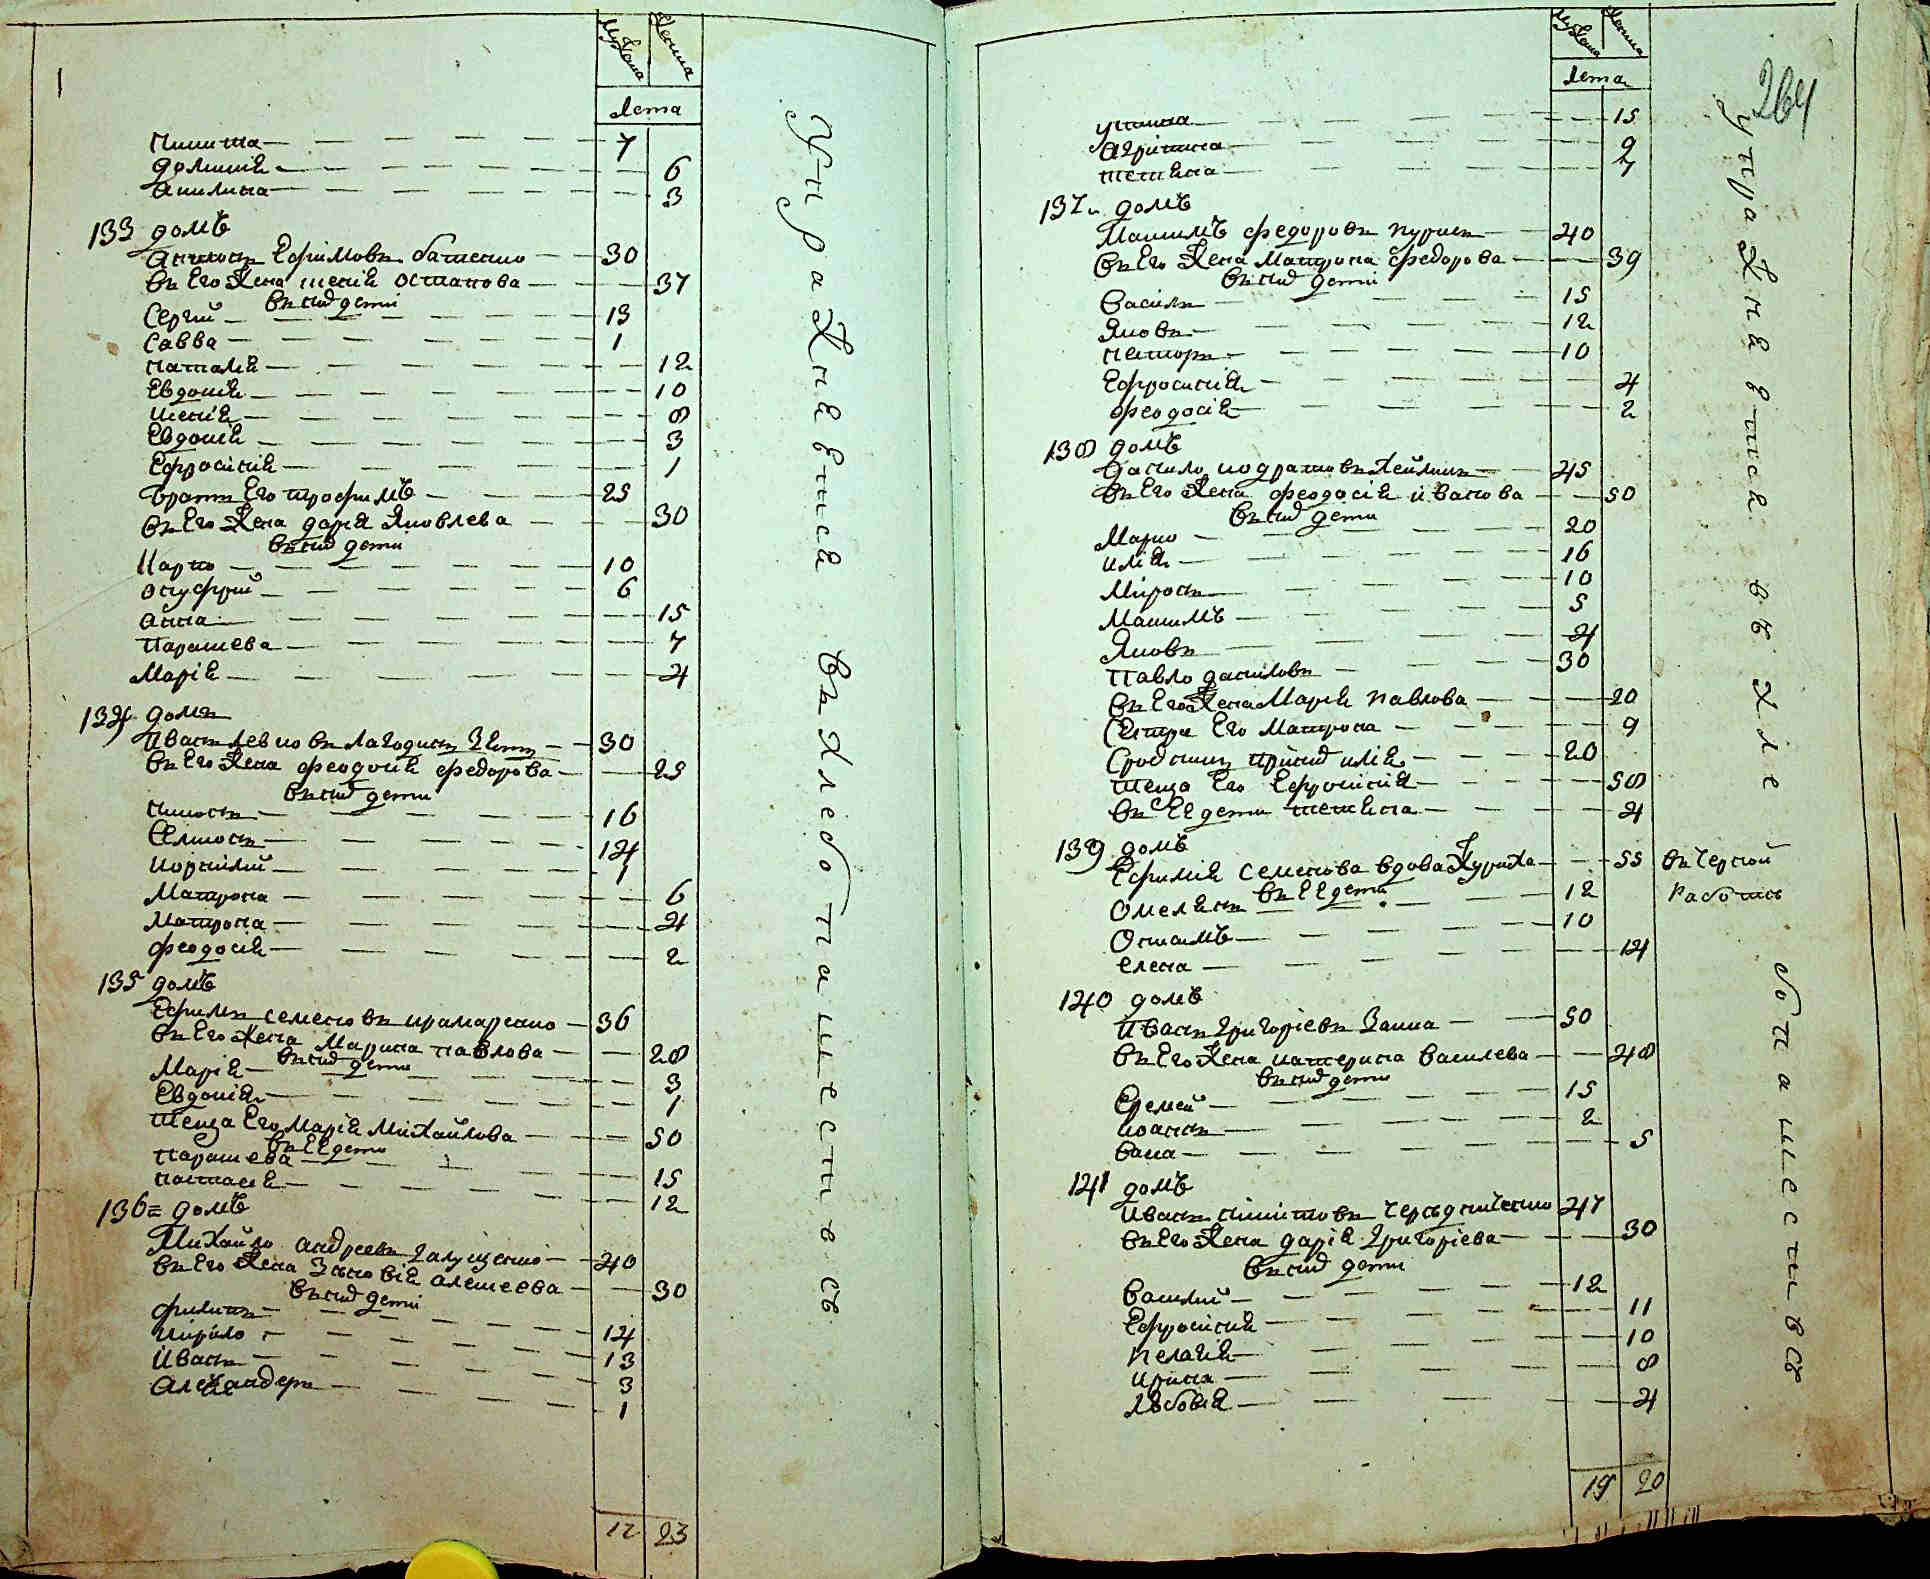 Мужска Женска
Лета
Никита 7
Домникія 6
Акилина 3
133 домъ
Антонъ Ефимовъ
30
въ Его Жена Ксенія Остапова 37
въ них дети
Сергий 13
Савва 1
Наталія 12
Евдокія 10
Ксенія 8
Евдокія 3
Ефросинія 1
Братъ Его Трофимъ 25
въ Его Жена Дарія Яковлева 30
въ них дети
Карпо 10
Онуфрий 6
Анна 15
Параскева 7
Марія 4
134 домъ
Иванъ Левковъ Лагодинъ Зеть 30
въ Его Жена Феодосія Федорова 25
въ них дети
16
14
Корнилий 1
Матрона 6
Матрона 4
Феодосія 2
135 домъ
Ефимъ Семеновъ Крамаренко 36
въ Его Жена Марина Павлова 28
въ них дети
Марія 3
Евдокія 1
Теща Его Марія Михайлова 50
въ Её дети
Параскева 15
Наталія 12
136 домъ
Михайло Андреевъ Галущенко 40
въ Его Жена Зѣновія Алексеева 30
въ них дети
Филипъ 14
Кирило 13
Иванъ 3
Александеръ 1
12 23
Упражняется въ хлеботашестивсъ
Мужска Женска
Лета
264
Устина 15
Агрипина 9
Текиена 7
137 домъ
Максимъ Федоровъ 40
въ Его Жена Матрона Федорова 39
въ них дети
Василь 15
Яковъ 12
Нестеръ 10
Ефросинія 4
Феодосія 2
138 домъ
Данило Кодратовъ 45
въ Его Жена Феодосія Иванова 50
въ них дети
Марко 20
Илія 16
Миронъ 10
Максимъ 5
Яковъ 4
Павло Даниловъ 30
въ Его Жена Марія Павлова 20
Сестра Его Матрона 9
Илія 20
Теща Его Ефросинія 58
въ Её дети 4
139 домъ
Ефимія Семенова вдова 55
въ Её дети
Омелянъ 12
Остапъ 10
Елена 14
въ Черной
Работь
140 домъ
Иванъ Григоріевъ Заика 50
въ Его Жена Катерина Василева 48
въ них дети
Еремей 15
Иоанъ 2
Васа 5
141 домъ
Иванъ Никитовъ Чередниченко 47
въ Его Жена Дарія Григоріева 30
въ них дети
Василий 12
Ефросинія 11
Пелагія 10
Ирина 8
Любовія 4
19 20
упражняется въ хлеботашестивсъ